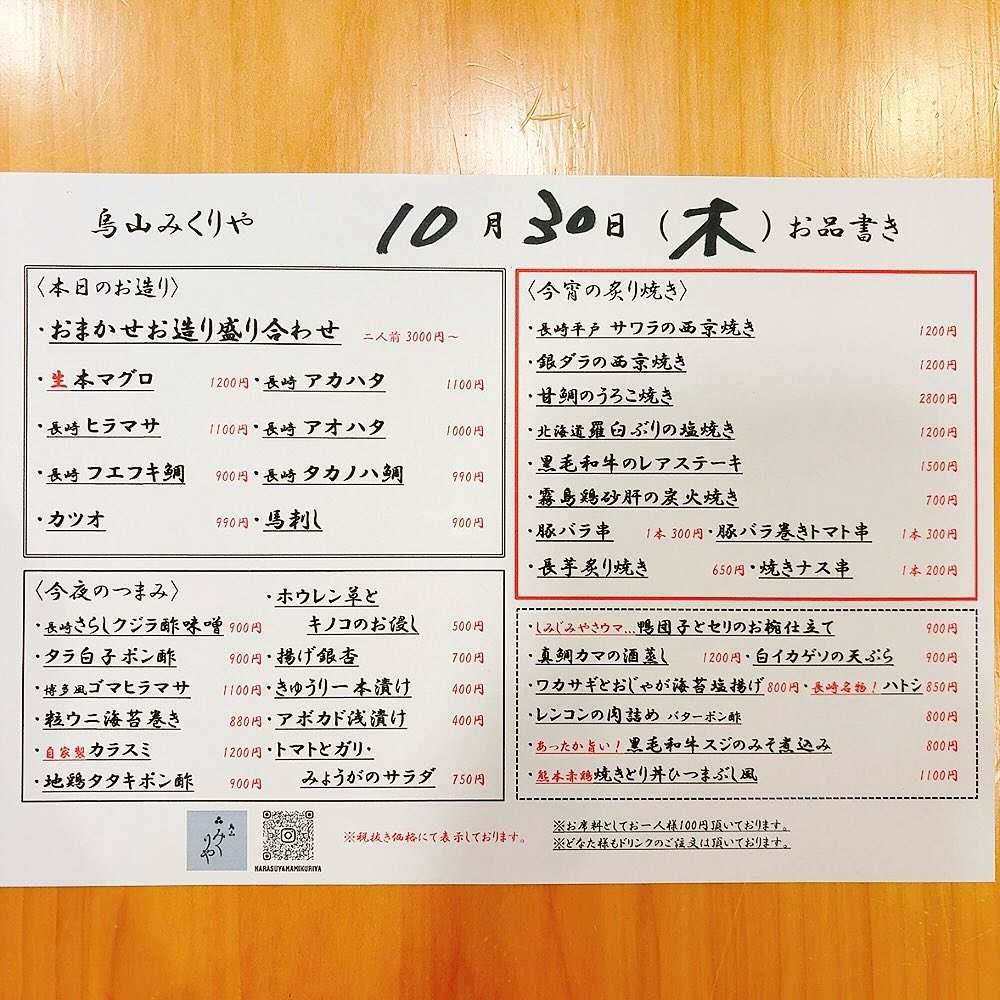 烏山みくりや 10月30日(木)お品書き
〈本日のお造り〉
・おまかせお造り盛り合わせ 二人前 3000円～
・生本マグロ 1200円・長崎 アカハタ 1100円
・長崎 ヒラマサ 1100円・長崎 アオハタ 1000円
・長崎 フエフキ鯛 900円・長崎 タカノハ鯛 990円
・カツオ 990円・馬刺し 900円
〈今夜のつまみ〉
・長崎さらしクジラ酢味噌 900円
・タラ白子ポン酢 900円
・博多風ゴマヒラマサ 1100円
・粒ウニ海苔巻き 880円
・自家製カラスミ 1200円
・地鶏タタキポン酢 900円
・ホウレン草と
キノコのお浸し 500円
・揚げ銀杏 700円
・きゅうり一本漬け 400円
・アボカド浅漬け 400円
・トマトとガリ・
みょうがのサラダ 750円
〈今宵の炙り焼き〉
・長崎平戸 サワラの西京焼き 1200円
・銀ダラの西京焼き 1200円
・甘鯛のうろこ焼き 2800円
・北海道羅臼ぶりの塩焼き 1200円
・黒毛和牛のレアステーキ 1500円
・霧島鶏砂肝の炭火焼き 700円
・豚バラ串 1本 300円・豚バラ巻きトマト串 1本 300円
・長芋炙り焼き 650円・焼きナス串 1本 200円
・しみじみやさウマ…鴨団子とセリのお椀仕立て 900円
・真鯛カマの酒蒸し 1200円・白イカゲソの天ぷら 900円
・ワカサギとおじゃが海苔塩揚げ 800円・長崎名物！ハトシ 850円
・レンコンの肉詰め バターポン酢 800円
・あったか旨い！黒毛和牛スジのみそ煮込み 800円
・熊本赤鶏焼きとり丼ひつまぶし風 1100円
烏山
みくりや
KARASUYAMAMIKURIYA
※税抜き価格にて表示しております。
※お席料としてお一人様100円頂いております。
※どなた様もドリンクのご注文は頂いております。